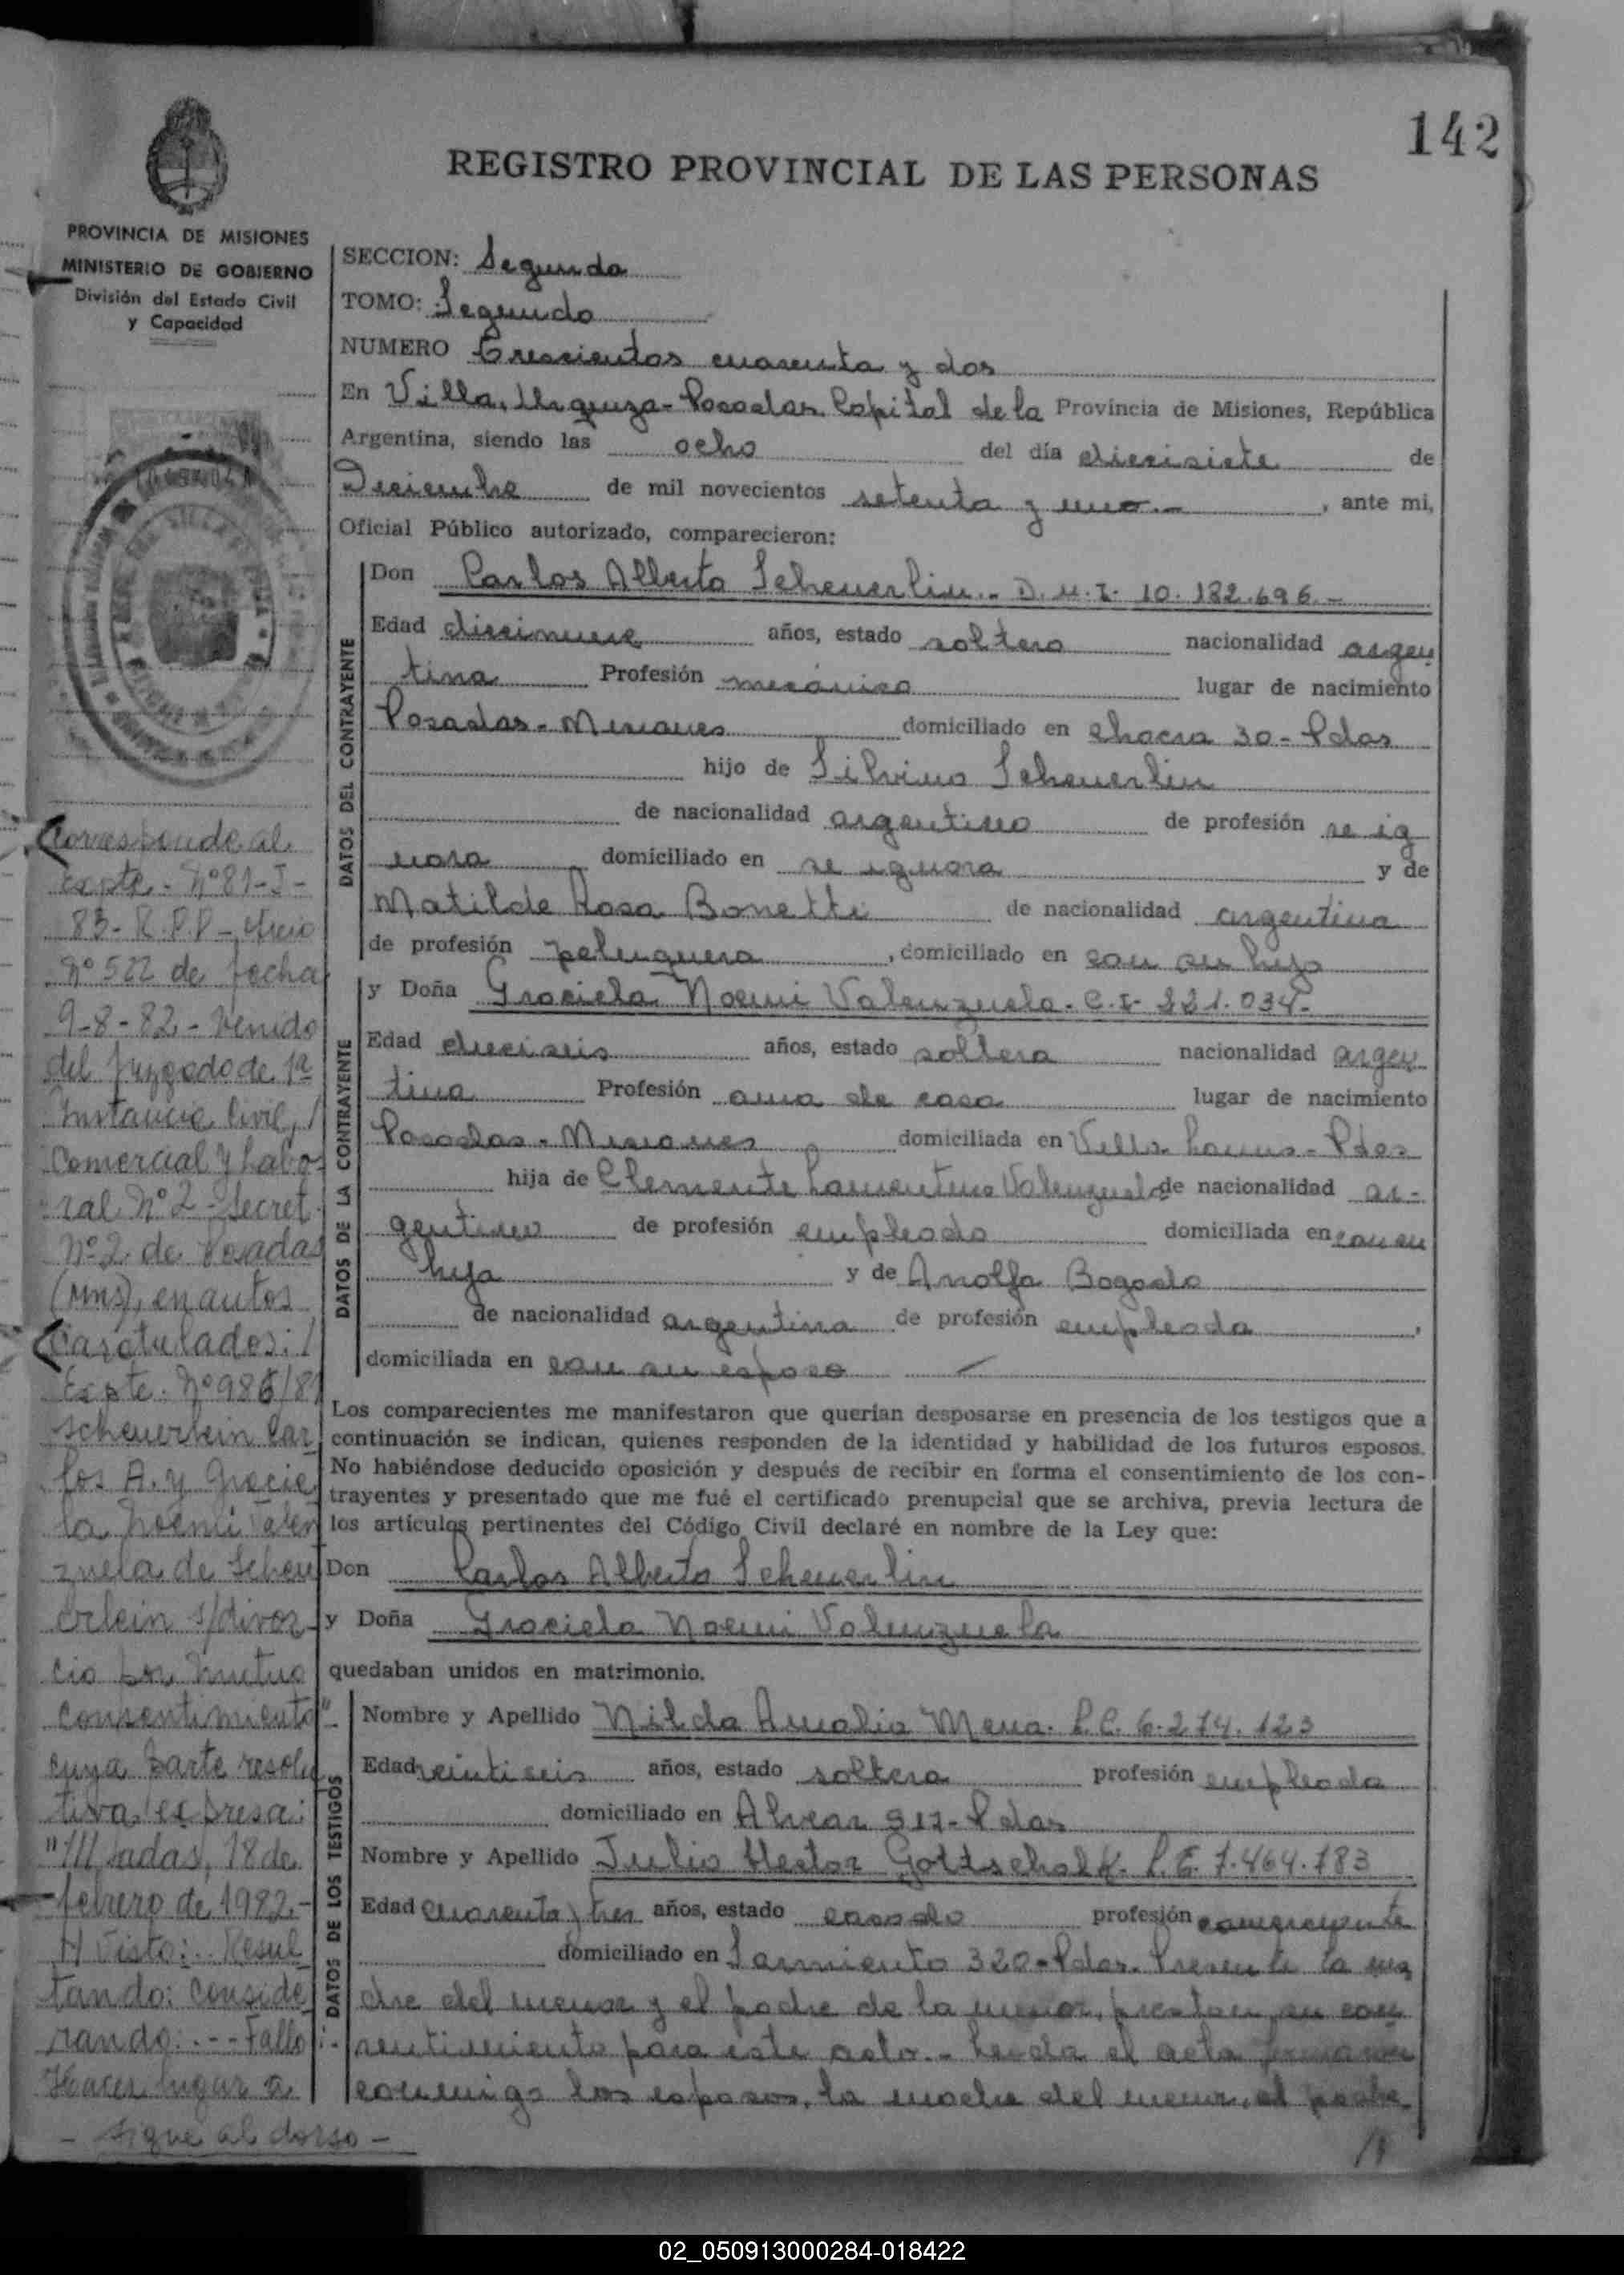 142
REGISTRO PROVINCIAL DE LAS PERSONAS
PROVINCIA DE MISIONES
MINISTERIO DE GOBIERNO
División del Estado Civil
y Capacidad
SECCION: Segunda
TOMO: Segundo
NUMERO Trescientos cuarenta y dos
En Villa Urquiza - Posadas Capital de la Provincia de Misiones, República
Argentina, siendo las ocho del día diecisiete de
Diciembre de mil novecientos setenta y uno.- , ante mi,
Oficial Público autorizado, comparecieron:
DATOS DEL CONTRAYENTE
Don Carlos Alberto Scheuerlin.- D.N.I. 10.182.696.-
Edad diecinueve años, estado soltero nacionalidad argen
tina Profesión mecánico lugar de nacimiento
Posadas - Misiones domiciliado en chacra 30 - Pdas
hijo de Silvino Scheuerlin
de nacionalidad argentino de profesión se ig
nora domiciliado en se ignora y de
Matilde Rosa Bonetti de nacionalidad argentina
de profesión peluquera , domiciliado en con su hijo
DATOS DE LA CONTRAYENTE
y Doña Graciela Noemi Valenzuela - C.I. 221.034.-
Edad dieciseis años, estado soltera nacionalidad argen
tina Profesión ama de casa lugar de nacimiento
Posadas - Misiones domiciliada en Villa - Pdas
hija de Clemente Valenzuela de nacionalidad ar-
gentino de profesión empleado domiciliada en con su
hija y de Anolfa Bogado
de nacionalidad argentina de profesión empleada ,
domiciliada en con su esposo
Los comparecientes me manifestaron que querían desposarse en presencia de los testigos que a
continuación se indican, quienes responden de la identidad y habilidad de los futuros esposos.
No habiéndose deducido oposición y después de recibir en forma el consentimiento de los con-
trayentes y presentado que me fué el certificado prenupcial que se archiva, previa lectura de
los artículos pertinentes del Código Civil declaré en nombre de la Ley que:
Don Carlos Alberto Scheuerlin
y Doña Graciela Noemi Valenzuela
quedaban unidos en matrimonio.
DATOS DE LOS TESTIGOS
Nombre y Apellido Nilda Amalia Mena. L.C. 6.274.123
Edad veintiseis años, estado soltera profesión empleada
domiciliado en Alvear 917 - Pdas
Nombre y Apellido Julio Hector Gottschalk. L.E. 7.464.183
Edad cuarenta y tres años, estado casado profesión comerciante
domiciliado en Sarmiento 320 - Pdas. Presente la ma
dre del menor y el padre de la menor, prestan su con
sentimiento para este acto.- Leida el acta firman
conmigo los esposos, la madre del menor, el padre
//
Corresponde al
Expte. Nº 81-J-
83- R.P.P - Oficio
Nº 522 de fecha
9-8-82 - Venido
del Juzgado de 1ª
Instancia Civil, /
Comercial y Labo-
ral Nº 2 - Secret.
Nº 2 de Posadas
(Mns), en autos
Caratulados: /
Expte. Nº 985/81
Scheuerlein Car
los A. y Gracie
la Noemi Valen
zuela de Scheu
erlein s/divor-
cio por mutuo
consentimiento"-
cuya parte resolu
tiva expresa:
"///sadas, 18 de
febrero de 1982.-
Y Visto: .. Resul
tando: Conside
rando: .--- Fallo:.-
Hacer lugar a
- sigue al dorso -
02_050913000284-018422